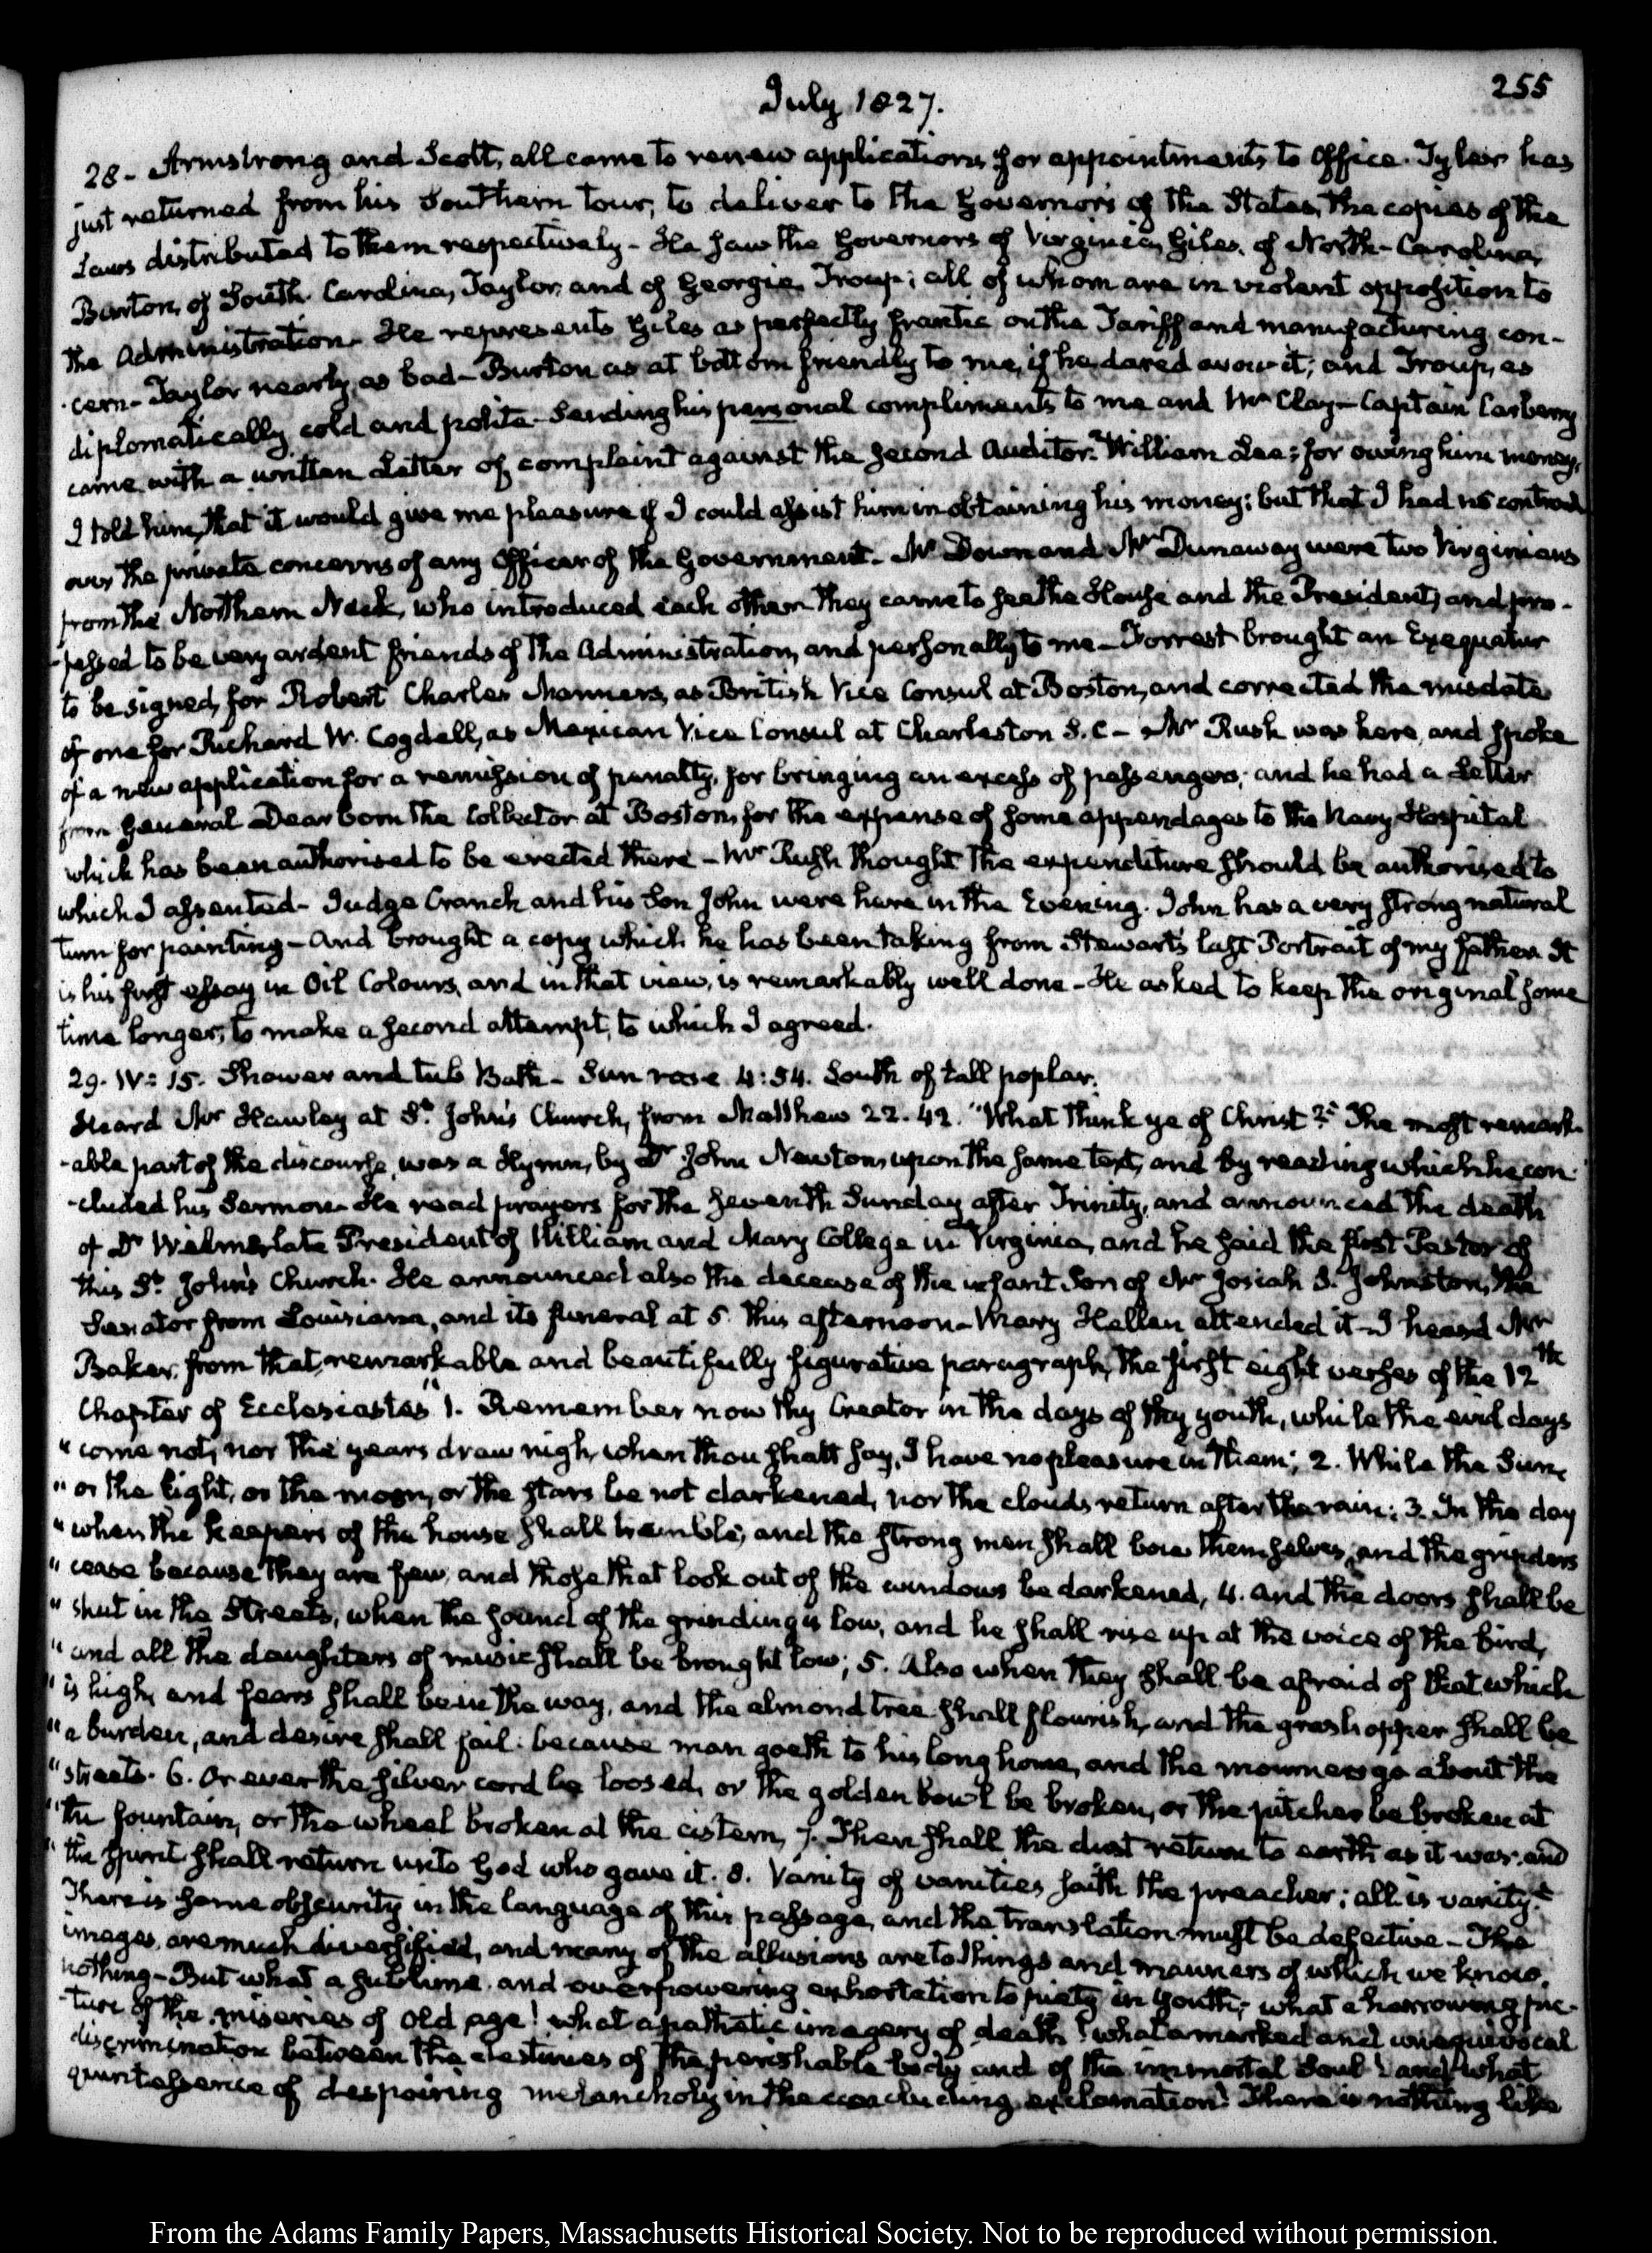 255
July 1827.
28 - Armstrong and Scott, all came to renew applications for appointments to Office. Tyler has
just returned from his Southern tour, to deliver to the Governors of the States, the copies of the
Laws distributed to them respectively - He saw the Governors of Virginia, Giles, of North-Carolina,
Burton, of South Carolina, Taylor, and of Georgia, Troup; all of whom are in violent opposition to
the Administration - He represents Giles as perfectly frantic on the Tariff and manufacturing con-
-cern - Taylor nearly as bad - Burton as at bottom friendly to me, if he dared avow it; and Troup, as
diplomatically cold and polite - Sending his personal compliments to me and Mr Clay - Captain Carbery
came with a written Letter of complaint against the second Auditor William Lee; for owing him money,
I told him, that it would give me pleasure if I could assist him in obtaining his money; but that I had no controul
over the private concerns of any Officer of the Government - Mr Down and Mr Dunaway were two Virginians
from the Northern Neck, who introduced each other. They came to see the House and the President, and pro-
-fessed to be very ardent friends of the Administration, and personally to me - Forrest brought an Exequatur
to be signed, for Robert Charles Manners, as British Vice Consul at Boston, and corrected the misdate
of one for Richard W. Cogdell, as Mexican Vice Consul at Charleston S.C - Mr Rush was here, and spoke
of a new application for a remission of penalty, for bringing an excess of passengers; and he had a Letter
from General Dearborn the Collector at Boston, for the expense of some appendages to the Navy Hospital
which has been authorised to be erected there - Mr Rush thought the expenditure should be authorised to
which I assented - Judge Cranch and his Son John were here in the Evening. John has a very strong natural
turn for painting - And brought a copy which he has been taking from Stewart's last Portrait of my father. It
is his first essay in Oil Colours, and in that view, is remarkably well done - He asked to keep the original some
time longer, to make a second attempt, to which I agreed.
29. IV: 15. Shower and tub Bath - Sun rose 4:54. South of tall poplar.
Heard Mr Hawley at St. John's Church, from Matthew 22. 42. "What think ye of Christ?" The most remark-
-able part of the discourse, was a Hymn, by Dr John Newton, upon the same text, and by reading which he con-
-cluded his Sermon - He read prayers for the seventh Sunday after Trinity, and announced the death
of Dr Wilmer, late President of William and Mary College in Virginia, and he said the first Pastor of
this St. John's Church. He announced also the decease of the infant Son of Mr Josiah S. Johnston, the
Senator from Louisiana, and its funeral at 5. this afternoon - Mary Hellen attended it - I heard Mr
Baker, from that remarkable and beautifully figurative paragraph, the first eight verses of the 12th
Chapter of Ecclesiastes "1. Remember now thy Creator in the days of thy youth, while the evil days
" come not, nor the years draw nigh, when thou shalt say, I have no pleasure in them; 2. While the Sun,
" or the light, or the moon, or the stars be not darkened, nor the clouds return after the rain: 3. In the day
" when the keepers of the house shall tremble, and the strong men shall bow themselves, and the grinders
" cease because they are few, and those that look out of the windows be darkened, 4. And the doors shall be
" shut in the Streets, when the sound of the grinding is low, and he shall rise up at the voice of the bird,
" and all the daughters of music shall be brought low; 5. Also when they shall be afraid of that which
" is high, and fears shall be in the way, and the almond tree shall flourish, and the grasshopper shall be
" a burden, and desire shall fail: because man goeth to his long home, and the mourners go about the
" streets. 6. Or ever the silver cord be loosed, or the golden bowl be broken, or the pitcher be broken at
" the fountain, or the wheel broken at the cistern, 7. Then shall the dust return to earth as it was: and
" the spirit shall return unto God who gave it. 8. Vanity of vanities saith the preacher; all is vanity."
There is some obscurity in the language of this passage, and the translation must be defective - The
images are much diversified, and many of the allusions are to things and manners of which we know
nothing - But what a sublime and overpowering exhortation to piety in youth; what a harrowing pic-
-ture of the miseries of old age! what a pathetic imagery of death! what a marked and unequivocal
discrimination between the destinies of the perishable body and of the immortal Soul! and what
quintessence of despairing melancholy in the concluding exclamation! There is nothing like
From the Adams Family Papers, Massachusetts Historical Society. Not to be reproduced without permission.